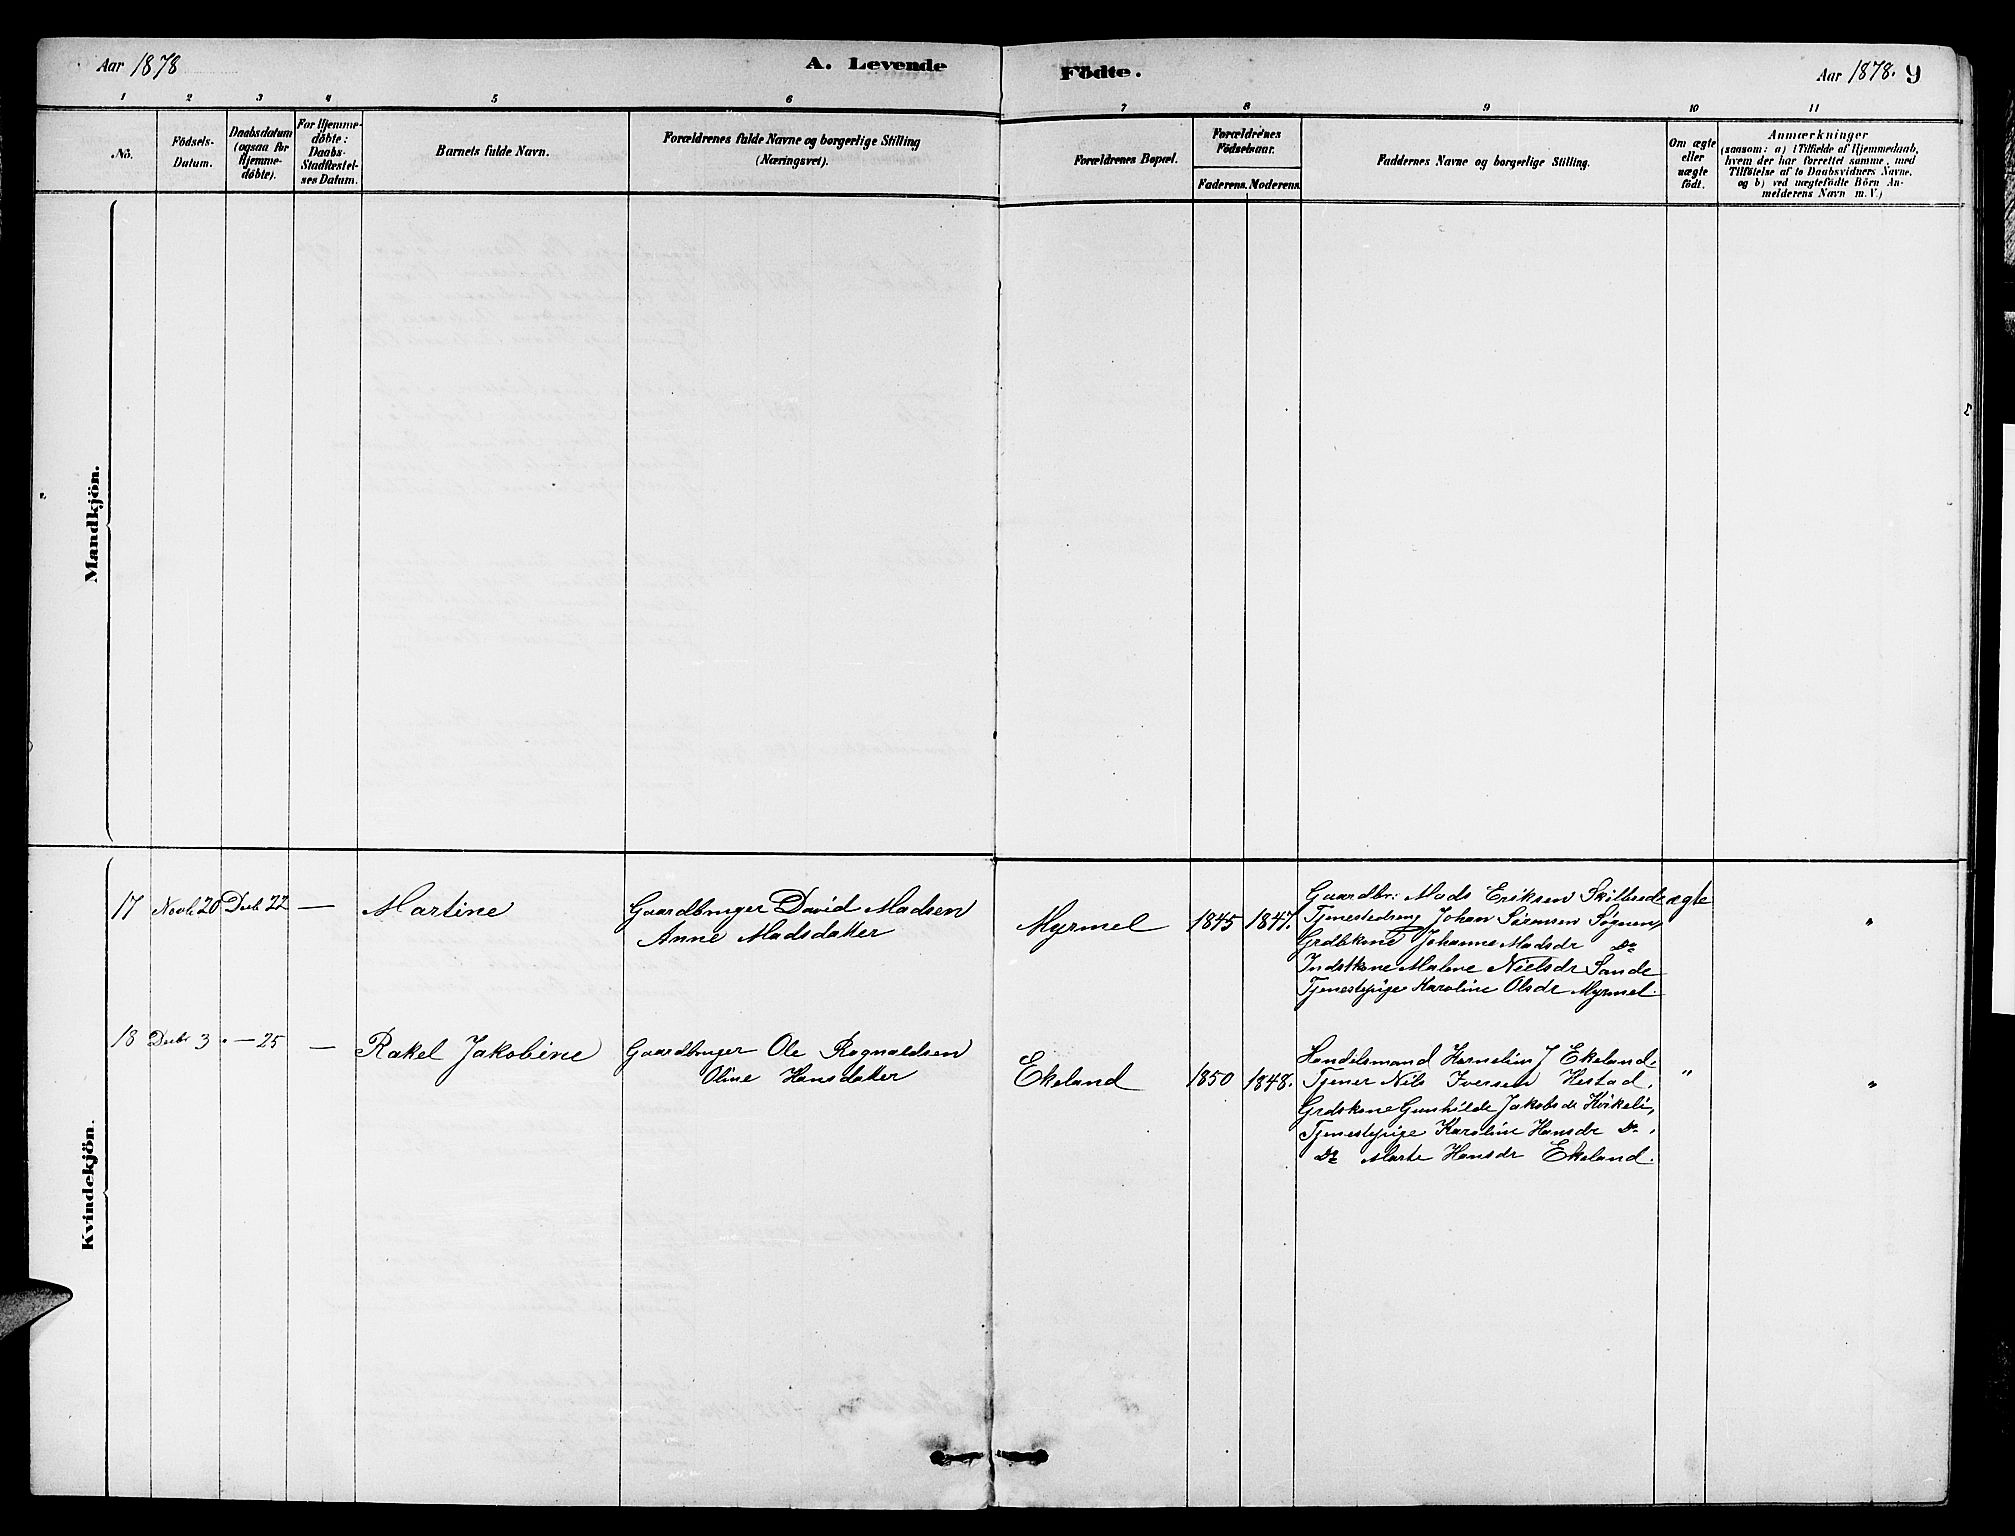 Aar 1878
A. Levende
Födte.
Aar 1878. 9
1 2 3 4 5 6 7 8 9 10 11
No.
Födsels-
Datum.
Daabsdatum
(ogsaa for
Hjemme-
döbte).
For Hjemme-
döbte:
Daabs-
Stadfæstel-
ses Datum.
Barnets fulde Navn.
Forældrenes fulde Navne og borgerlige Stilling
(Næringsvei).
Forældrenes Bopæl.
Forældrenes
Födselsaar.
Faderens. Moderens.
Faddernes Navne og borgerlige Stilling.
Om ægte
eller
uægte
födt.
Anmærkninger
(saasom: a) i Tilfælde af Hjemmedaab,
hvem der har forrettet samme, med
Tilföielse af to Daabsvidners Navne,
og b) ved uægtefödte Börn An-
melderens Navn m. V.)
Mandkjön.
Kvindekjön.
17 Novb. 20 Decb. 22 — Martine
Gaardbruger David Madsen
Anne Madsdatter
Myrmel 1845 1847.
Gaardbr: Mads Eriksen Skilbred
Tjenestedreng Johan Sørensen Sognen,
Grdbkone Johanne Madsdr Do
Indstkone Malene Nielsdr Sande
Tjenestepige Karoline Olsdr Myrmel.
ægte "
18 Decbr 3 " — 25 — Rakel Jakobine
Gaardbruger Ole Rognaldsen
Oline Hansdatter
Ekeland 1850 1848.
Handelsmand Kornelius J Ekeland.
Tjener Nils Iversen Hestad.
Grdskone Gunhilde Jakobsdr Kvikeli,
Tjenestepige Karoline Hansdr Do.
Do Marte Hansdr Ekeland.
" "